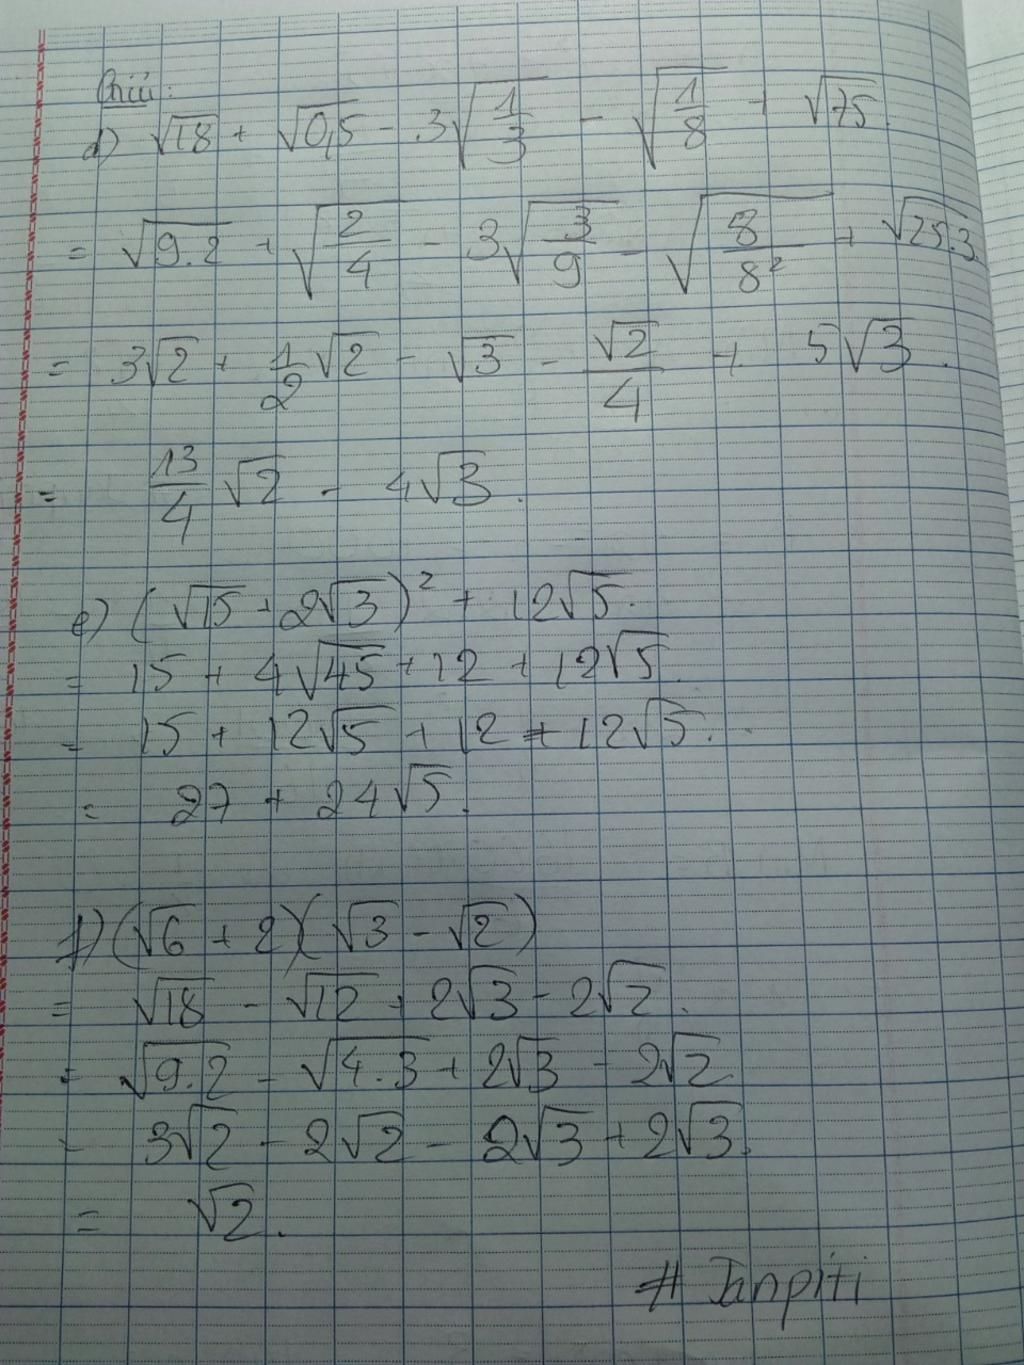 Giải:
d) √18 + √0,5 - 3√(1/3) - √(1/8) + √75.
= √9.2 + √(2/4) - 3√(3/9) - √(8/8²) + √25.3.
= 3√2 + 1/2 √2 - √3 - √2/4 + 5√3.
= 13/4 √2 - 4√3.
e) (√15 + 2√3)² + 12√5.
= 15 + 4√45 + 12 + 12√5.
= 15 + 12√5 + 12 + 12√5.
= 27 + 24√5.
f) (√6 + 2)(√3 - √2)
= √18 - √12 + 2√3 - 2√2.
= √9.2 - √4.3 + 2√3 - 2√2
= 3√2 - 2√2 - 2√3 + 2√3.
= √2.
#